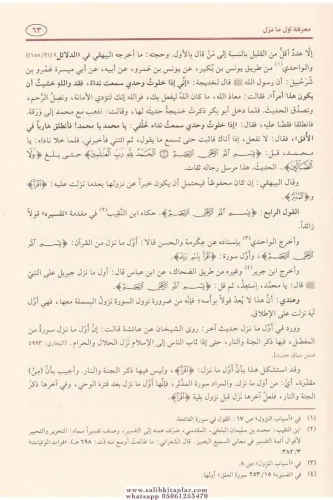 معرفة أول ما نزل
٦٣
إلّا عددٌ أقلُّ من القليل بالنسبة إلى مَنْ قال بالأول. وحجته: ما أخرجه البيهقي في «الدلائل» [١٥٨/٢]
والواحدي(١) من طريق يونس بن بُكير، عن يونس بن عَمرو، عن أبيه، عن أبي ميسرة عَمرو بن
شُرَحبيل: أن رسول الله ﷺ قال لخديجة: «إنّي إذا خلوتُ وحدي سمعت نداءً، فقد والله خشيتُ أن
يكون هذا أمراً». فقالت: معاذَ الله، ما كان اللهُ ليفعل بك، فوالله إنك لتؤدي الأمانة، وتصِلُ الرَّحم،
وتصدُق الحديث. فلما دخل أبو بكر ذكرتْ خديجةُ حديثه لها، وقالت: اذهب مع محمد إلى وَرَقة.
فانطلقا فقصّا عليه، فقال: «إذا خلوتُ وحدي سمعت نداءً خَلْفي: يا محمد يا محمد! فأنطلق هارباً في
الأفق». فقال: لا تفعل، إذا أتاك فاثبت حتى تسمع ما يقول، ثم ائتني فأخبرني. فلما خلا ناداه: يا
محمد، قل: ﴿بِسْمِ اللَّهِ الرَّحْمَٰنِ الرَّحِيمِ الْحَمْدُ لِلَّهِ رَبِّ الْعَالَمِينَ﴾ حتى بلغ ﴿وَلَا
الضَّالِّينَ﴾. الحديث. هذا مرسل رجاله ثقات.
وقال البيهقي: إن كان محفوظاً فيحتمل أن يكون خبراً عن نزولها بعدما نزلت عليه: ﴿اقْرَأْ﴾
القول الرابع: ﴿بِسْمِ اللَّهِ الرَّحْمَٰنِ الرَّحِيمِ﴾. حكاه ابن النَّقيب(٢) في مقدمة «تفسيره» قولاً
زائداً.
وأخرج الواحدي(٣) بإسناده عن عِكرمة والحسن قالا: أوّل ما نزل من القرآن: ﴿بِسْمِ اللَّهِ
الرَّحْمَٰنِ الرَّحِيمِ﴾، وأوّل سورة: ﴿اقْرَأْ بِاسْمِ رَبِّكَ﴾.
وأخرج ابن جرير(٤) وغيره من طريق الضحاك، عن ابن عباس قال: أول ما نزل جبريل على النبيّ
ﷺ قال: يا محمّد، استعِذْ، ثم قل: ﴿بِسْمِ اللَّهِ الرَّحْمَٰنِ الرَّحِيمِ﴾.
وعندي: أنّ هذا لا يُعدّ قولاً برأسه؛ فإنّه من ضرورة نزول السورة نزولُ البسملة معها، فهي أوّل
آية نزلت على الإطلاق.
وورد في أوّل ما نزل حديث آخر: روى الشيخان عن عائشة قالت: إن أوّل ما نزل سورةٌ من
المفصّل، فيها ذكر الجنة والنار، حتى إذا ثاب الناس إلى الإسلام نَزَل الحلال والحرام. [البخاري: ٤٩٩٣
ضمن سياق حديث].
وقد استشكل هذا بأنّ أوّل ما نزل: ﴿اقْرَأْ﴾، وليس فيها ذكر الجنة والنار. وأجيب بأنّ (مِنْ)
مقدّرة، أيْ: من أول ما نزل، والمراد سورة المدّثر، فإنها أوّل ما نزل بعد فترة الوحي، وفي آخرها ذكرُ
الجنة والنار، فلعلّ آخرها نزل قبل نزول بقية ﴿اقْرَأْ﴾.
(١) في «أسباب النزول» ص ١٧: القول في سورة الفاتحة.
(٢) ابن النقيب: محمد بن سليمان البلخي، المقدسي، صرَف همته إلى التفسير، وصنف تفسيراً سماه: «التحرير والتحبير
لأقوال أئمة التفسير في معاني السميع البصير. قال الشعراني: ما طالعت أوسع منه (ت: ٦٩٨ هـ). «فوات الوفيات»
٣٨٢/٣.
(٣) في «أسباب النزول» ص ٨.
(٤) في «تفسيره» ٢٥٣/١٥ سورة العلق؛ أولها.
www.salihkitaplar.com
whatsapp 05061255470